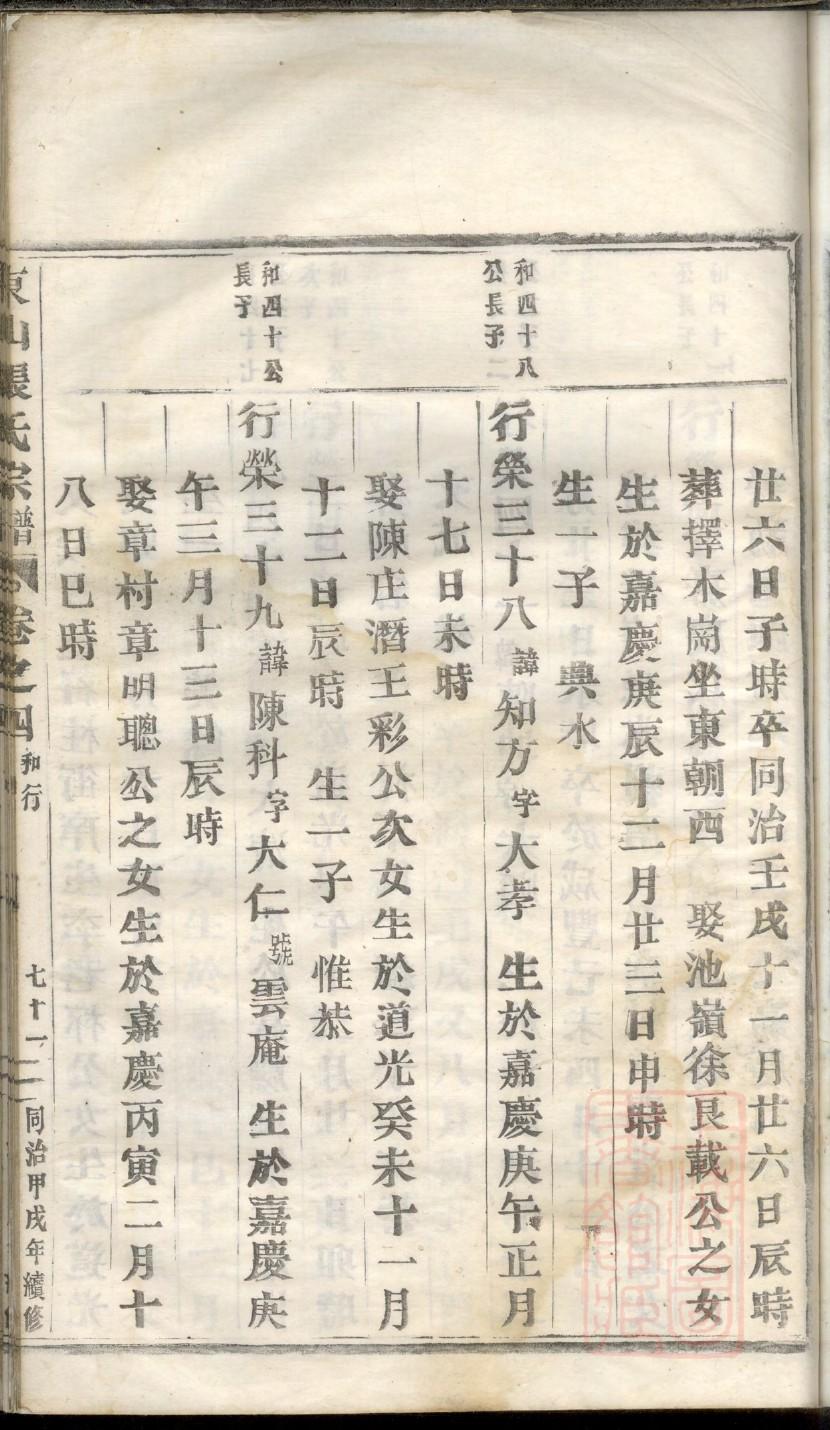 廿六日子時卒同治壬戌十一月廿六日辰時
葬擇木崗坐東朝西 娶池嶺徐艮載公之女
生於嘉慶庚辰十二月廿三日申時
生一子 典水
和四十八
公長子二
行榮三十八諱知方字大孝 生於嘉慶庚午正月
十七日未時
娶陳庄潛王彩公次女生於道光癸未十一月
十二日辰時 生一子 惟恭
和四十公
長子
行榮三十九諱陳科字大仁號雲庵 生於嘉慶庚
午三月十三日辰時
娶章村章明聰公之女生於嘉慶丙寅二月十
八日巳時
東山張氏宗譜 卷之四 和行 七十一 同治甲戌年續修